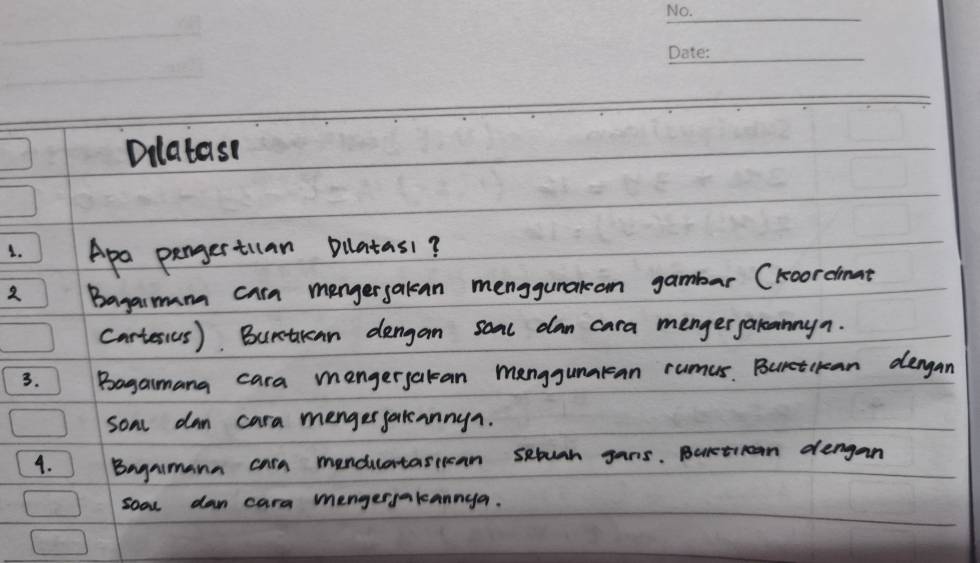 No.
Date:
Dilatasi
1. Apa pengertian Dilatasi?
2 Bagaimana cara mengerjakan menggunakan gambar (Koordinat
Cartesius). Buktikan dengan soal dan cara mengerjakannya.
3. Bagaimana cara mengerjakan menggunakan rumus. Buktikan dengan
soal dan cara mengerjakannya.
4. Bagaimana cara mendilatasikan sebuah garis. Buktikan dengan
soal dan cara mengerjakannya.